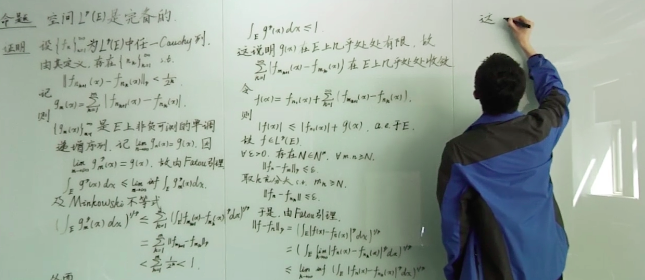 命题 空间 L^p(E) 是完备的.
证明 设 {f_n}_{n=1}^∞ 为 L^p(E) 中任一 Cauchy 列.
由其定义, 存在 {n_k}_{k=1}^∞ s.t.
‖f_{n_{k+1}}(x) - f_{n_k}(x)‖_p < 1/2^k.
记
g_m(x) = ∑_{k=1}^m |f_{n_{k+1}}(x) - f_{n_k}(x)|.
则
是 E 上非负可测的单调
递增序列. 记 lim_{m→∞} g_m(x) = g(x). 因
lim_{m→∞} g_m^p(x) = g^p(x). 故由 Fatou 引理
∫_E g^p(x) dx ≤ lim_{m→∞} inf ∫_E g_m^p(x) dx.
及 Minkowski 不等式
(∫_E g_m^p(x) dx)^{1/p} ≤ ∑_{k=1}^m (∫_E |f_{n_{k+1}}(x) - f_{n_k}(x)|^p dx)^{1/p}
= ∑_{k=1}^m ‖f_{n_{k+1}} - f_{n_k}‖_p
< ∑_{k=1}^m 1/2^k < 1.
∫_E g^p(x) dx ≤ 1.
这说明 g(x) 在 E 上几乎处处有限. 故
∑_{k=1}^∞ |f_{n_{k+1}}(x) - f_{n_k}(x)| 在 E 上几乎处处收敛
令
f(x) = f_{n_1}(x) + ∑_{k=1}^∞ [f_{n_{k+1}}(x) - f_{n_k}(x)].
则
|f(x)| ≤ |f_{n_1}(x)| + g(x). a.e. E.
故 f ∈ L^p(E).
∀ε>0. 存在 N∈N*. ∀m,n≥N.
‖f_n - f_m‖_p ≤ ε.
取 k 充分大 s.t. n_k ≥ N.
‖f_n - f_{n_k}‖ ≤ ε.
于是. 由 Fatou 引理.
‖f - f_n‖_p = (∫_E |f(x) - f_n(x)|^p dx)^{1/p}
= (∫_E lim_{k→∞} |f_{n_k}(x) - f_n(x)|^p dx)^{1/p}
≤ lim_{k→∞} inf (∫_E |f_{n_k}(x) - f_n(x)|^p dx)^{1/p}
这